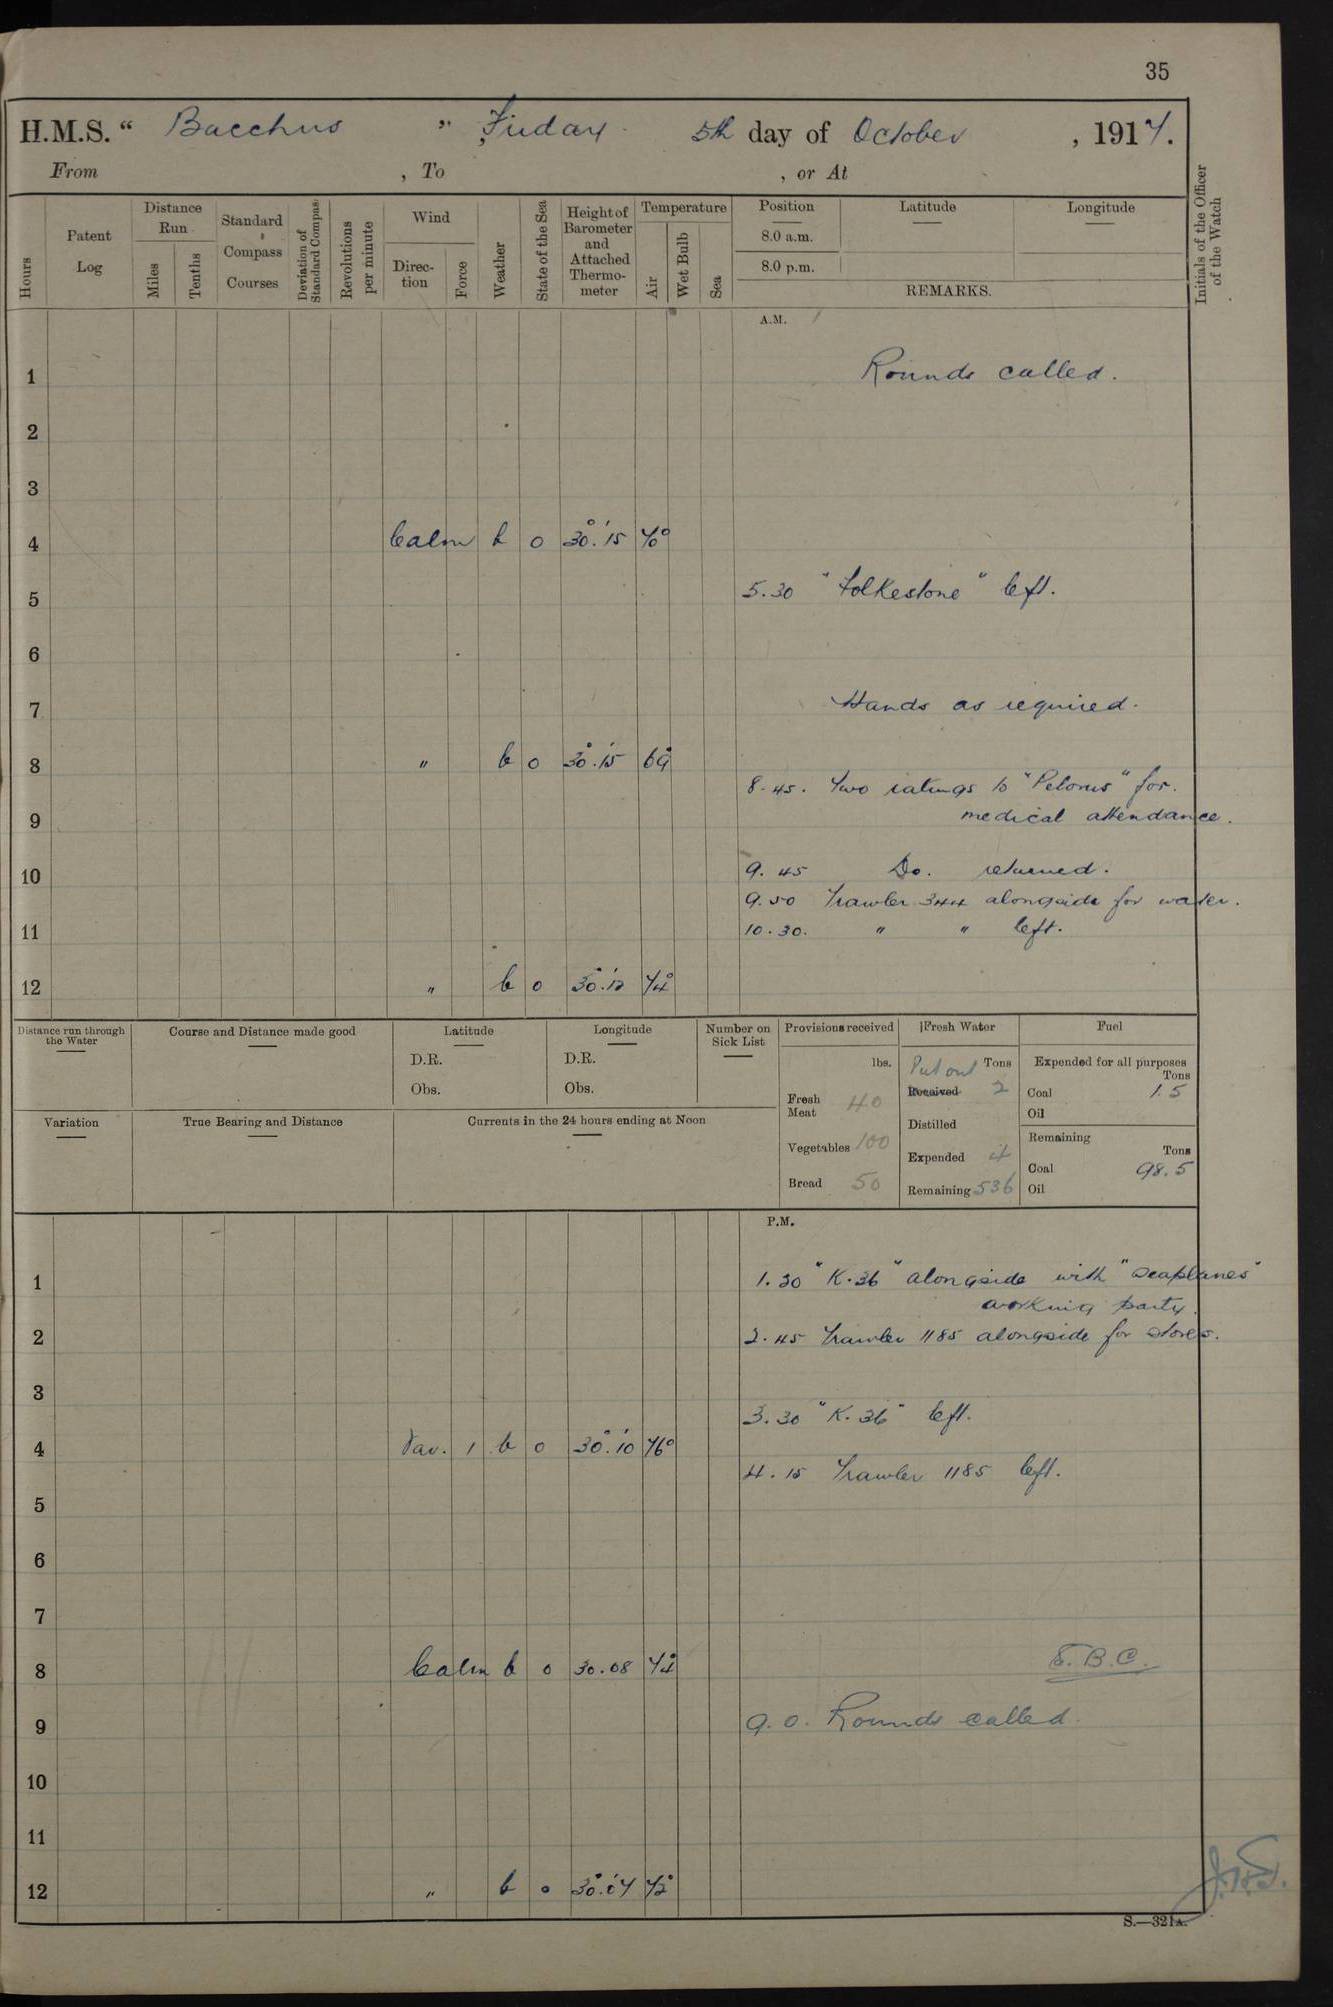 35
H.M.S. “ Bacchus ” Friday 5th day of October , 1917.
From , To , or At
Hours
Patent Log
Distance Run
Miles
Tenths
Standard Compass Courses
Deviation of Standard Compass
Revolutions per minute
Wind
Direc-tion
Force
Weather
State of the Sea
Height of Barometer and Attached Thermo-meter
Temperature
Air
Wet Bulb
Sea
Position
8.0 a.m.
8.0 p.m.
Latitude
Longitude
REMARKS.
Initials of the Officer of the Watch
A.M.
1 Rounds called.
2
3
4 Calm b 0 30.15 70°
5 5.30 "Folkestone" left.
6
7 Hands as required.
8 " b 0 30.15 69°
8.45. Two ratings to "Pelorus" for
9 medical attendance.
10 9.45 Do. returned.
9.50 Trawler 344 alongside for water.
11 10.30. " " left.
12 " b 0 30.12 74°
Distance run through the Water
Course and Distance made good
Latitude
D.R.
Obs.
Longitude
D.R.
Obs.
Number on Sick List
Provisions received
lbs.
Fresh Meat 40
Vegetables 100
Bread 50
Fresh Water
Put out Tons
Received 2
Distilled
Expended 4
Remaining 536
Fuel
Expended for all purposes
Tons
Coal 1.5
Oil
Remaining
Tons
Coal 98.5
Oil
Variation
True Bearing and Distance
Currents in the 24 hours ending at Noon
P.M.
1 1.30 "K.36" alongside with "Seaplanes"
working party.
2 2.45 Trawler 1185 alongside for stores.
3
3.30 "K.36" left.
4 Var. 1 b 0 30.10 76°
4.15 Trawler 1185 left.
5
6
7
8 Calm b 0 30.08 74° E.B.C.
9 9.0. Rounds called.
10
11
12 " b 0 30.07 72°
S.—321A.